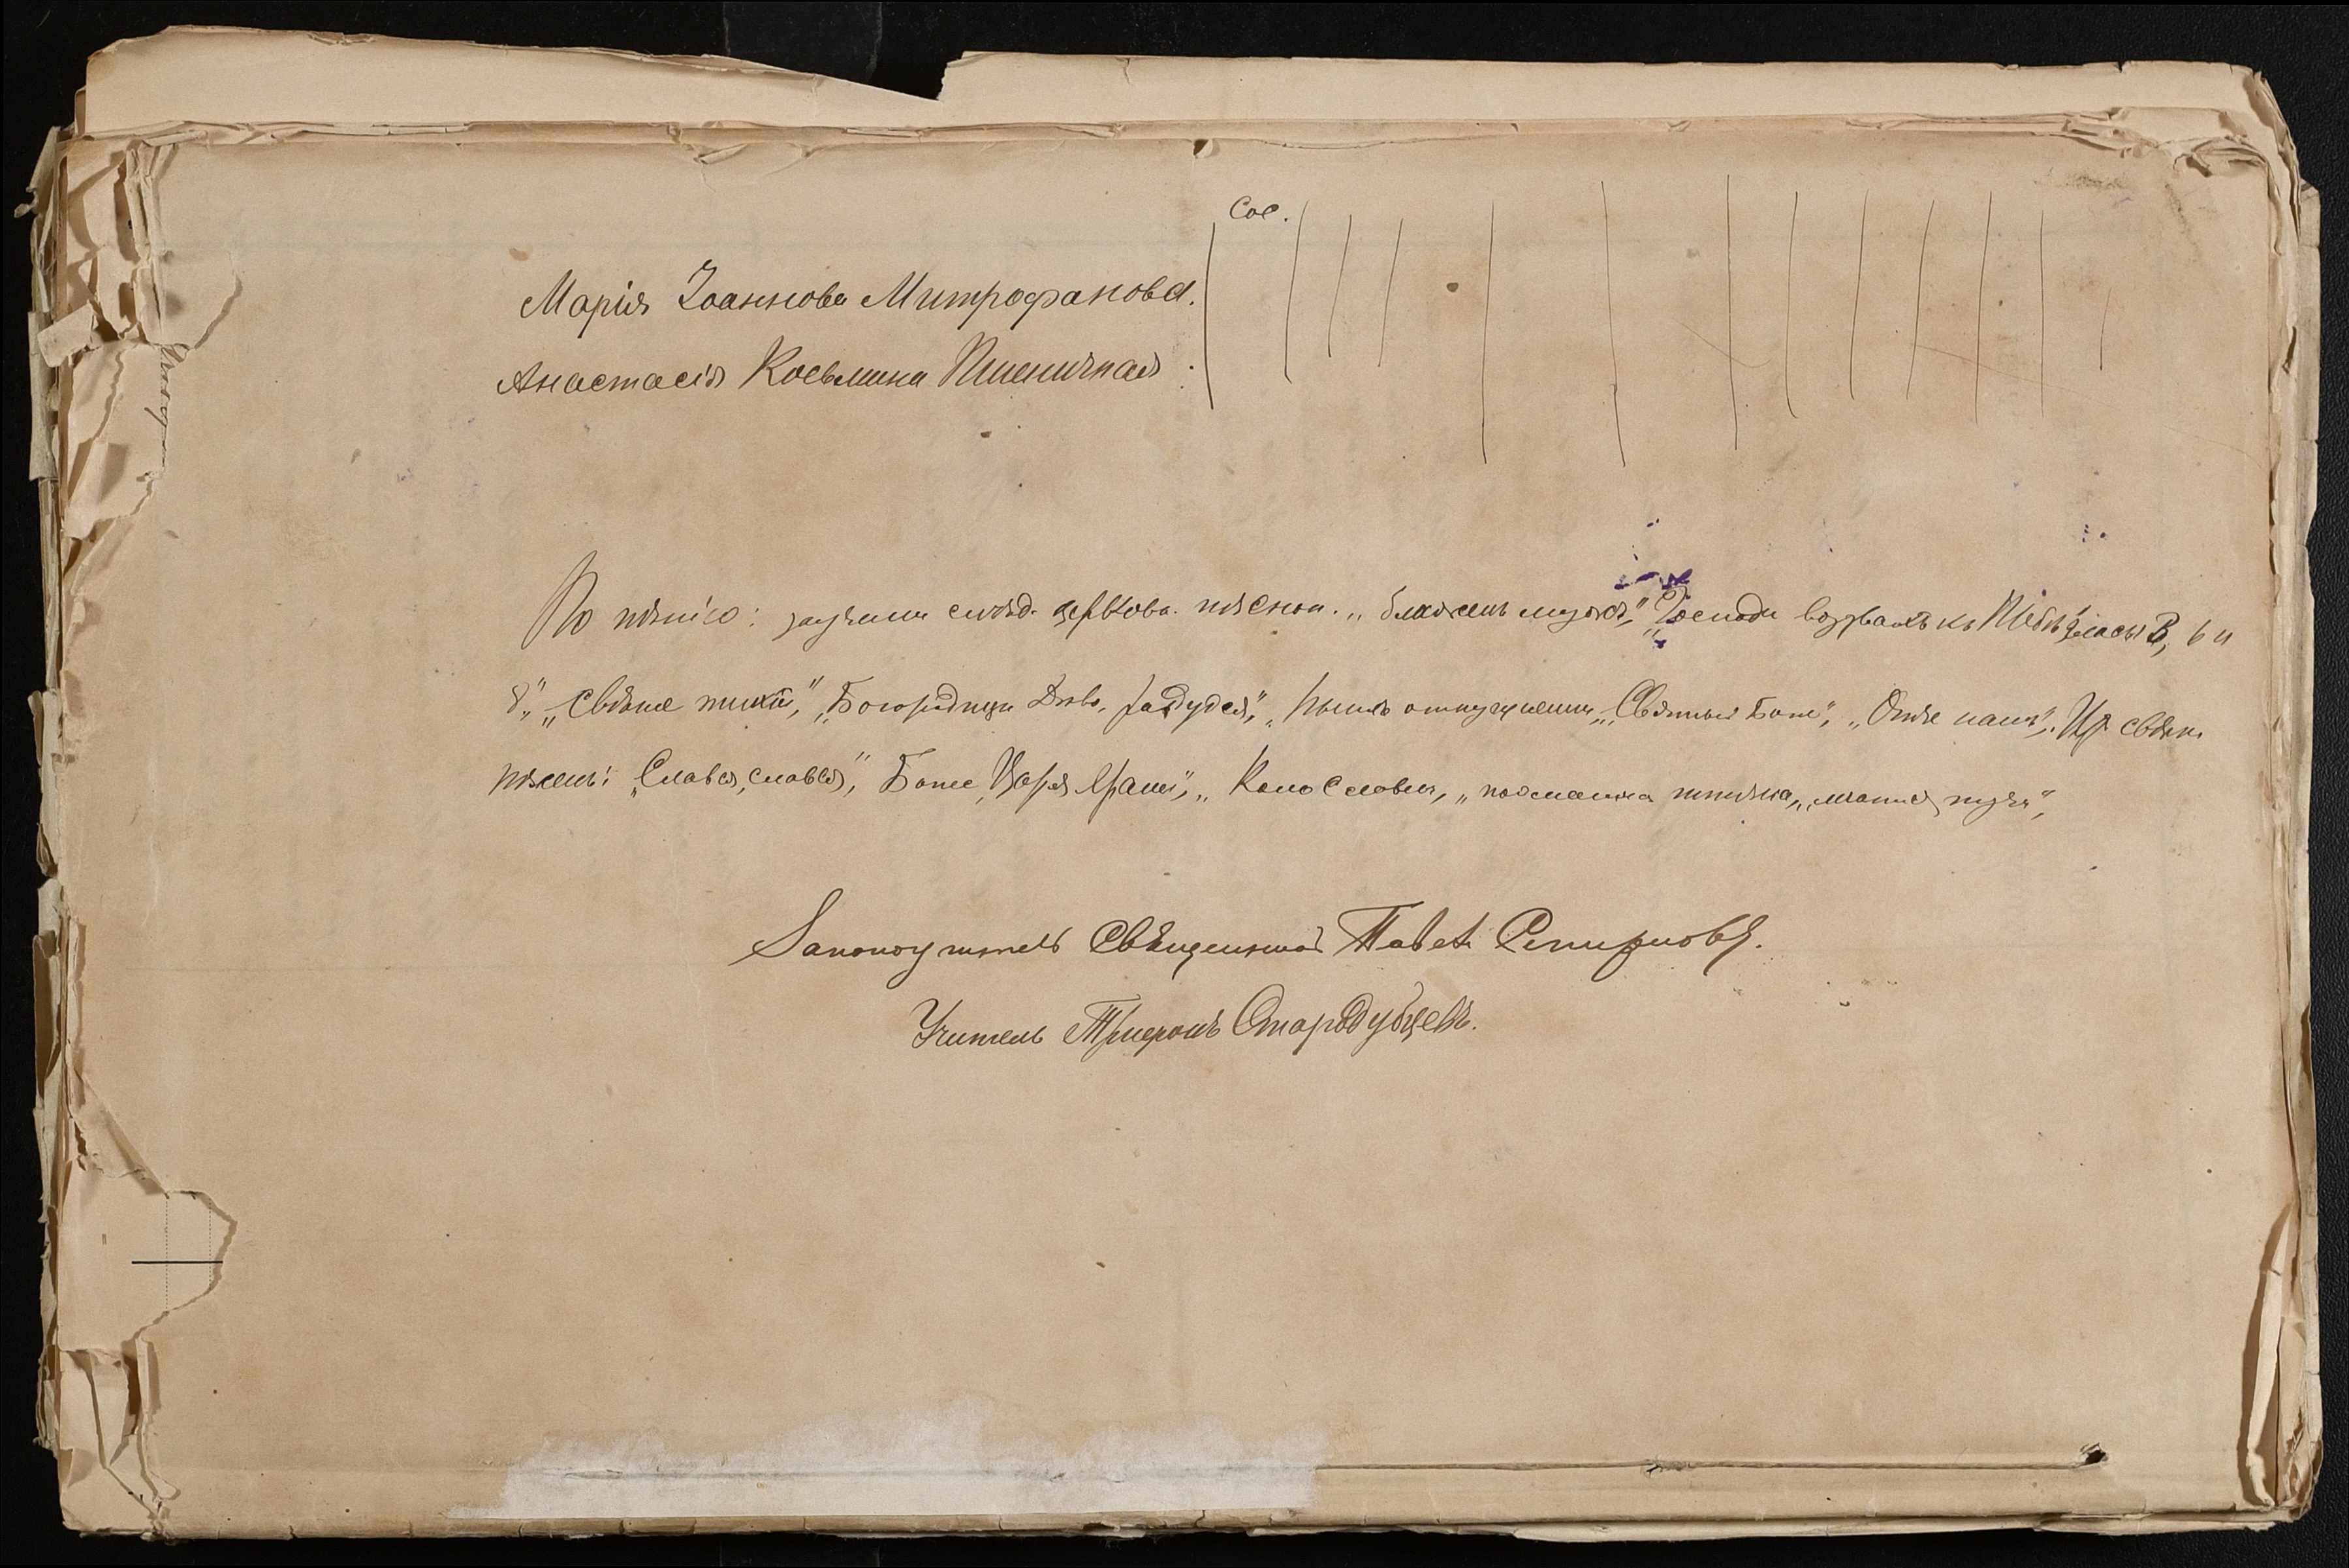 Сос.
Марія Іоаннова Митрофанова.
Анастасія Косьмина Пшеничная
По пѣнію: заучили слѣд. церковн. пѣсноп. „блаженъ мужъ", „Господи воззвахъ къ Тебѣ" гласы В, 6 и
8", „Свѣте тихій", „Богородице Дѣво, радуйся", „Нынѣ отпущаеши", „Святый Боже", „Отче нашъ".
пѣсенъ: „Славься, славься", Боже, Царя Храни", „Коло
Законоучитель Священникъ Павелъ Смирновъ.
Учитель Трифонъ Стародубцевъ.